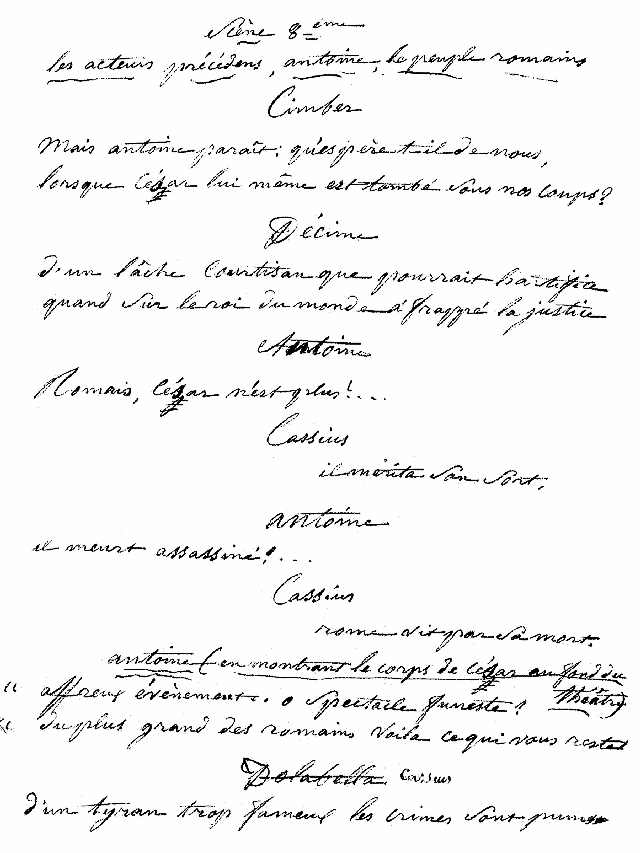 scène 8ème
les acteurs précédens, antoine, le peuple romains
Cimber
Mais antoine paraît: qu'espère t il de nous,
lorsque César lui même est tombé sous nos coups?
Décime
d'un lâche Courtisan que pourrait l'artifice
quand sur le roi du monde a frappé la justice
Antoine
Romais, César n'est plus!...
Cassius
il mérita son sort.
antoine
il meurt assassiné!...
Cassius
rome vit par sa mort.
antoine (en montrant le corps de César au fond du
théâtre)
" affreux évènement. o spectacle funeste!
" du plus grand des romains voila ce qui vous reste
Dolabella Cassius
d'un tyran trop fameux les crimes sont punis